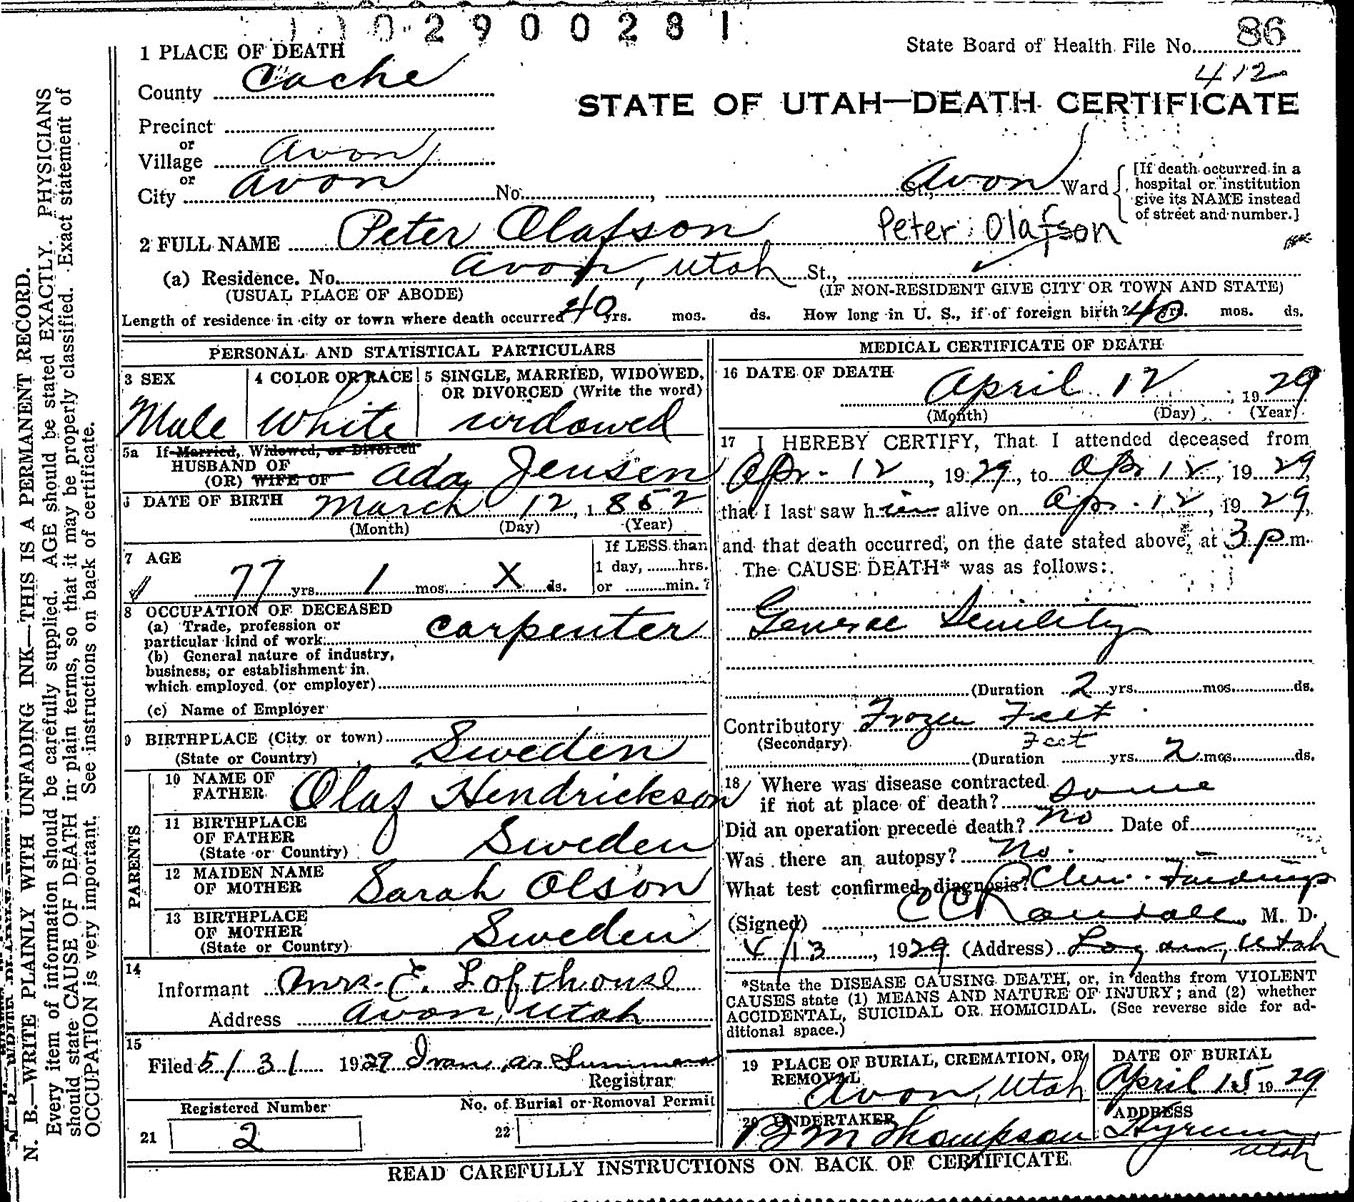 2900281
1 PLACE OF DEATH
State Board of Health File No. 86
412
County Cache
STATE OF UTAH—DEATH CERTIFICATE
Precinct
or
Village Avon
or
City Avon No. , St., Avon Ward
[If death occurred in a
hospital or institution
give its NAME instead
of street and number.]
2 FULL NAME Peter Olafson Peter Olafson
(a) Residence. No. Avon, Utah St.,
(USUAL PLACE OF ABODE) (IF NON-RESIDENT GIVE CITY OR TOWN AND STATE)
Length of residence in city or town where death occurred 40 yrs. mos. ds. How long in U. S., if of foreign birth? 40 yrs. mos. ds.
PERSONAL AND STATISTICAL PARTICULARS
3 SEX 4 COLOR OR RACE 5 SINGLE, MARRIED, WIDOWED,
OR DIVORCED (Write the word)
Male White widowed
5a If Married, Widowed, or Divorced
HUSBAND OF
(OR) WIFE OF Ada Jensen
6 DATE OF BIRTH March 12, 1852
(Month) (Day) (Year)
7 AGE
77 yrs. 1 mos. X ds.
If LESS than
1 day, hrs.
or min.?
8 OCCUPATION OF DECEASED
(a) Trade, profession or
particular kind of work carpenter
(b) General nature of industry,
business, or establishment in
which employed (or employer)
(c) Name of Employer
9 BIRTHPLACE (City or town)
(State or Country) Sweden
PARENTS
10 NAME OF
FATHER Olaf Hendrickson
11 BIRTHPLACE
OF FATHER
(State or Country) Sweden
12 MAIDEN NAME
OF MOTHER Sarah Olson
13 BIRTHPLACE
OF MOTHER
(State or Country) Sweden
14
Informant Mrs. E. Lofthouse
Address Avon, Utah
15
Filed 5/31 1929
Registrar
Registered Number No. of Burial or Removal Permit
21 2 22
MEDICAL CERTIFICATE OF DEATH
16 DATE OF DEATH April 12, 1929
(Month) (Day) (Year)
17 I HEREBY CERTIFY, That I attended deceased from
Apr. 12, 1929, to Apr 12, 1929,
that I last saw him alive on Apr. 12, 1929,
and that death occurred, on the date stated above, at 3 p.m.
The CAUSE DEATH* was as follows:
General Senility
(Duration 2 yrs. mos. ds.
Contributory Frozen Feet
(Secondary) Feet
(Duration yrs. 2 mos. ds.
18 Where was disease contracted
if not at place of death? same
Did an operation precede death? No Date of
Was there an autopsy? No.
What test confirmed diagnosis? Clin. Findings
(Signed) C C Randall, M. D.
4/13, 1929 (Address) Logan, Utah
*State the DISEASE CAUSING DEATH, or, in deaths from VIOLENT
CAUSES state (1) MEANS AND NATURE OF INJURY; and (2) whether
ACCIDENTAL, SUICIDAL OR HOMICIDAL. (See reverse side for ad-
ditional space.)
19 PLACE OF BURIAL, CREMATION, OR
REMOVAL
Avon, Utah
DATE OF BURIAL
April 15 1929
20 UNDERTAKER
B M Thompson
ADDRESS
Hyrum
Utah
READ CAREFULLY INSTRUCTIONS ON BACK OF CERTIFICATE
N. B.—WRITE PLAINLY WITH UNFADING INK—THIS IS A PERMANENT RECORD.
Every item of information should be carefully supplied. AGE should be stated EXACTLY. PHYSICIANS
should state CAUSE OF DEATH in plain terms, so that it may be properly classified. Exact statement of
OCCUPATION is very important. See instructions on back of certificate.